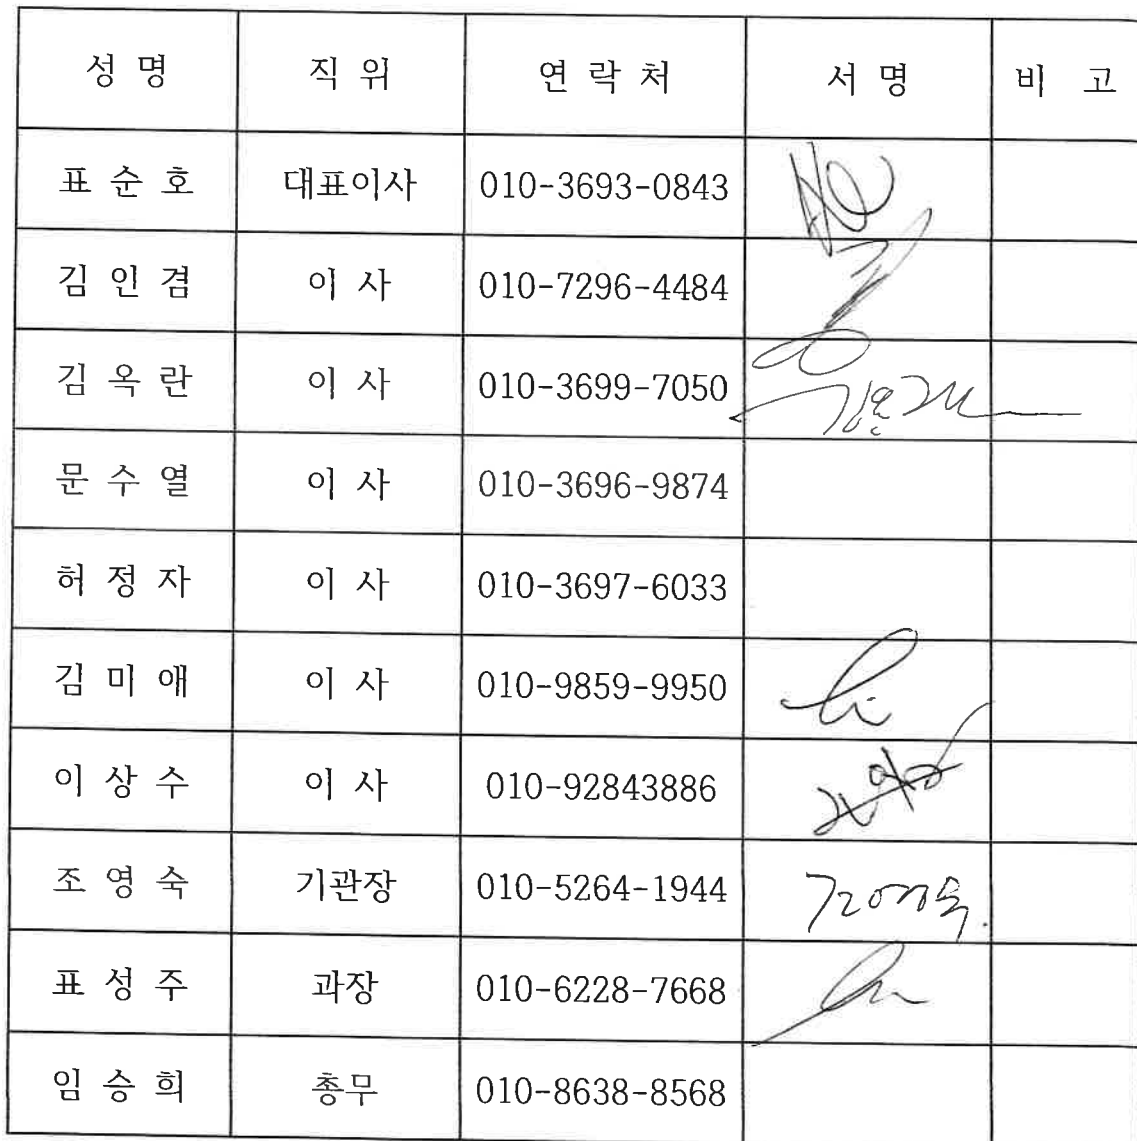 성 명 직 위 연 락 처 서 명 비 고
표 순 호 대표이사 010-3693-0843
김 인 겸 이 사 010-7296-4484
김 옥 란 이 사 010-3699-7050
문 수 열 이 사 010-3696-9874
허 정 자 이 사 010-3697-6033
김 미 애 이 사 010-9859-9950
이 상 수 이 사 010-92843886
조 영 숙 기관장 010-5264-1944 조영숙.
표 성 주 과장 010-6228-7668
임 승 희 총무 010-8638-8568